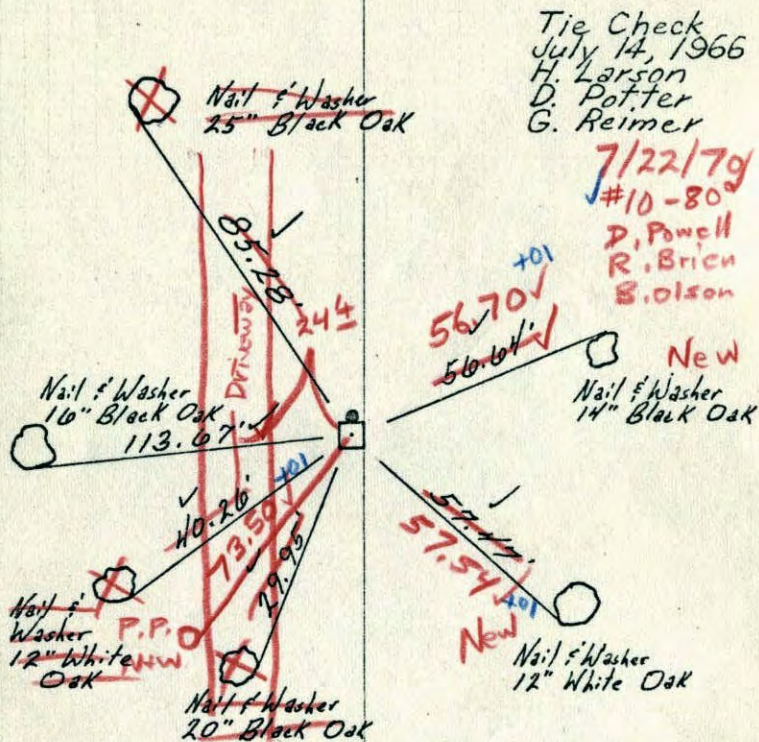 Tie Check
July 14, 1966
H. Larson
D. Potter
G. Reimer
7/22/79
#10-80
D. Powell
R. Brien
B. Olson
Nail & Washer
25" Black Oak
85.28'
Driveway
24 4
+01
56.70
56.64'
New
Nail & Washer
14" Black Oak
Nail & Washer
16" Black Oak
113.67'
40.26'
+01
73.50
29.95
57.47'
57.54
+01
New
Nail &
Washer
12" White
Oak
P.P.
New
Nail & Washer
20" Black Oak
Nail & Washer
12" White Oak